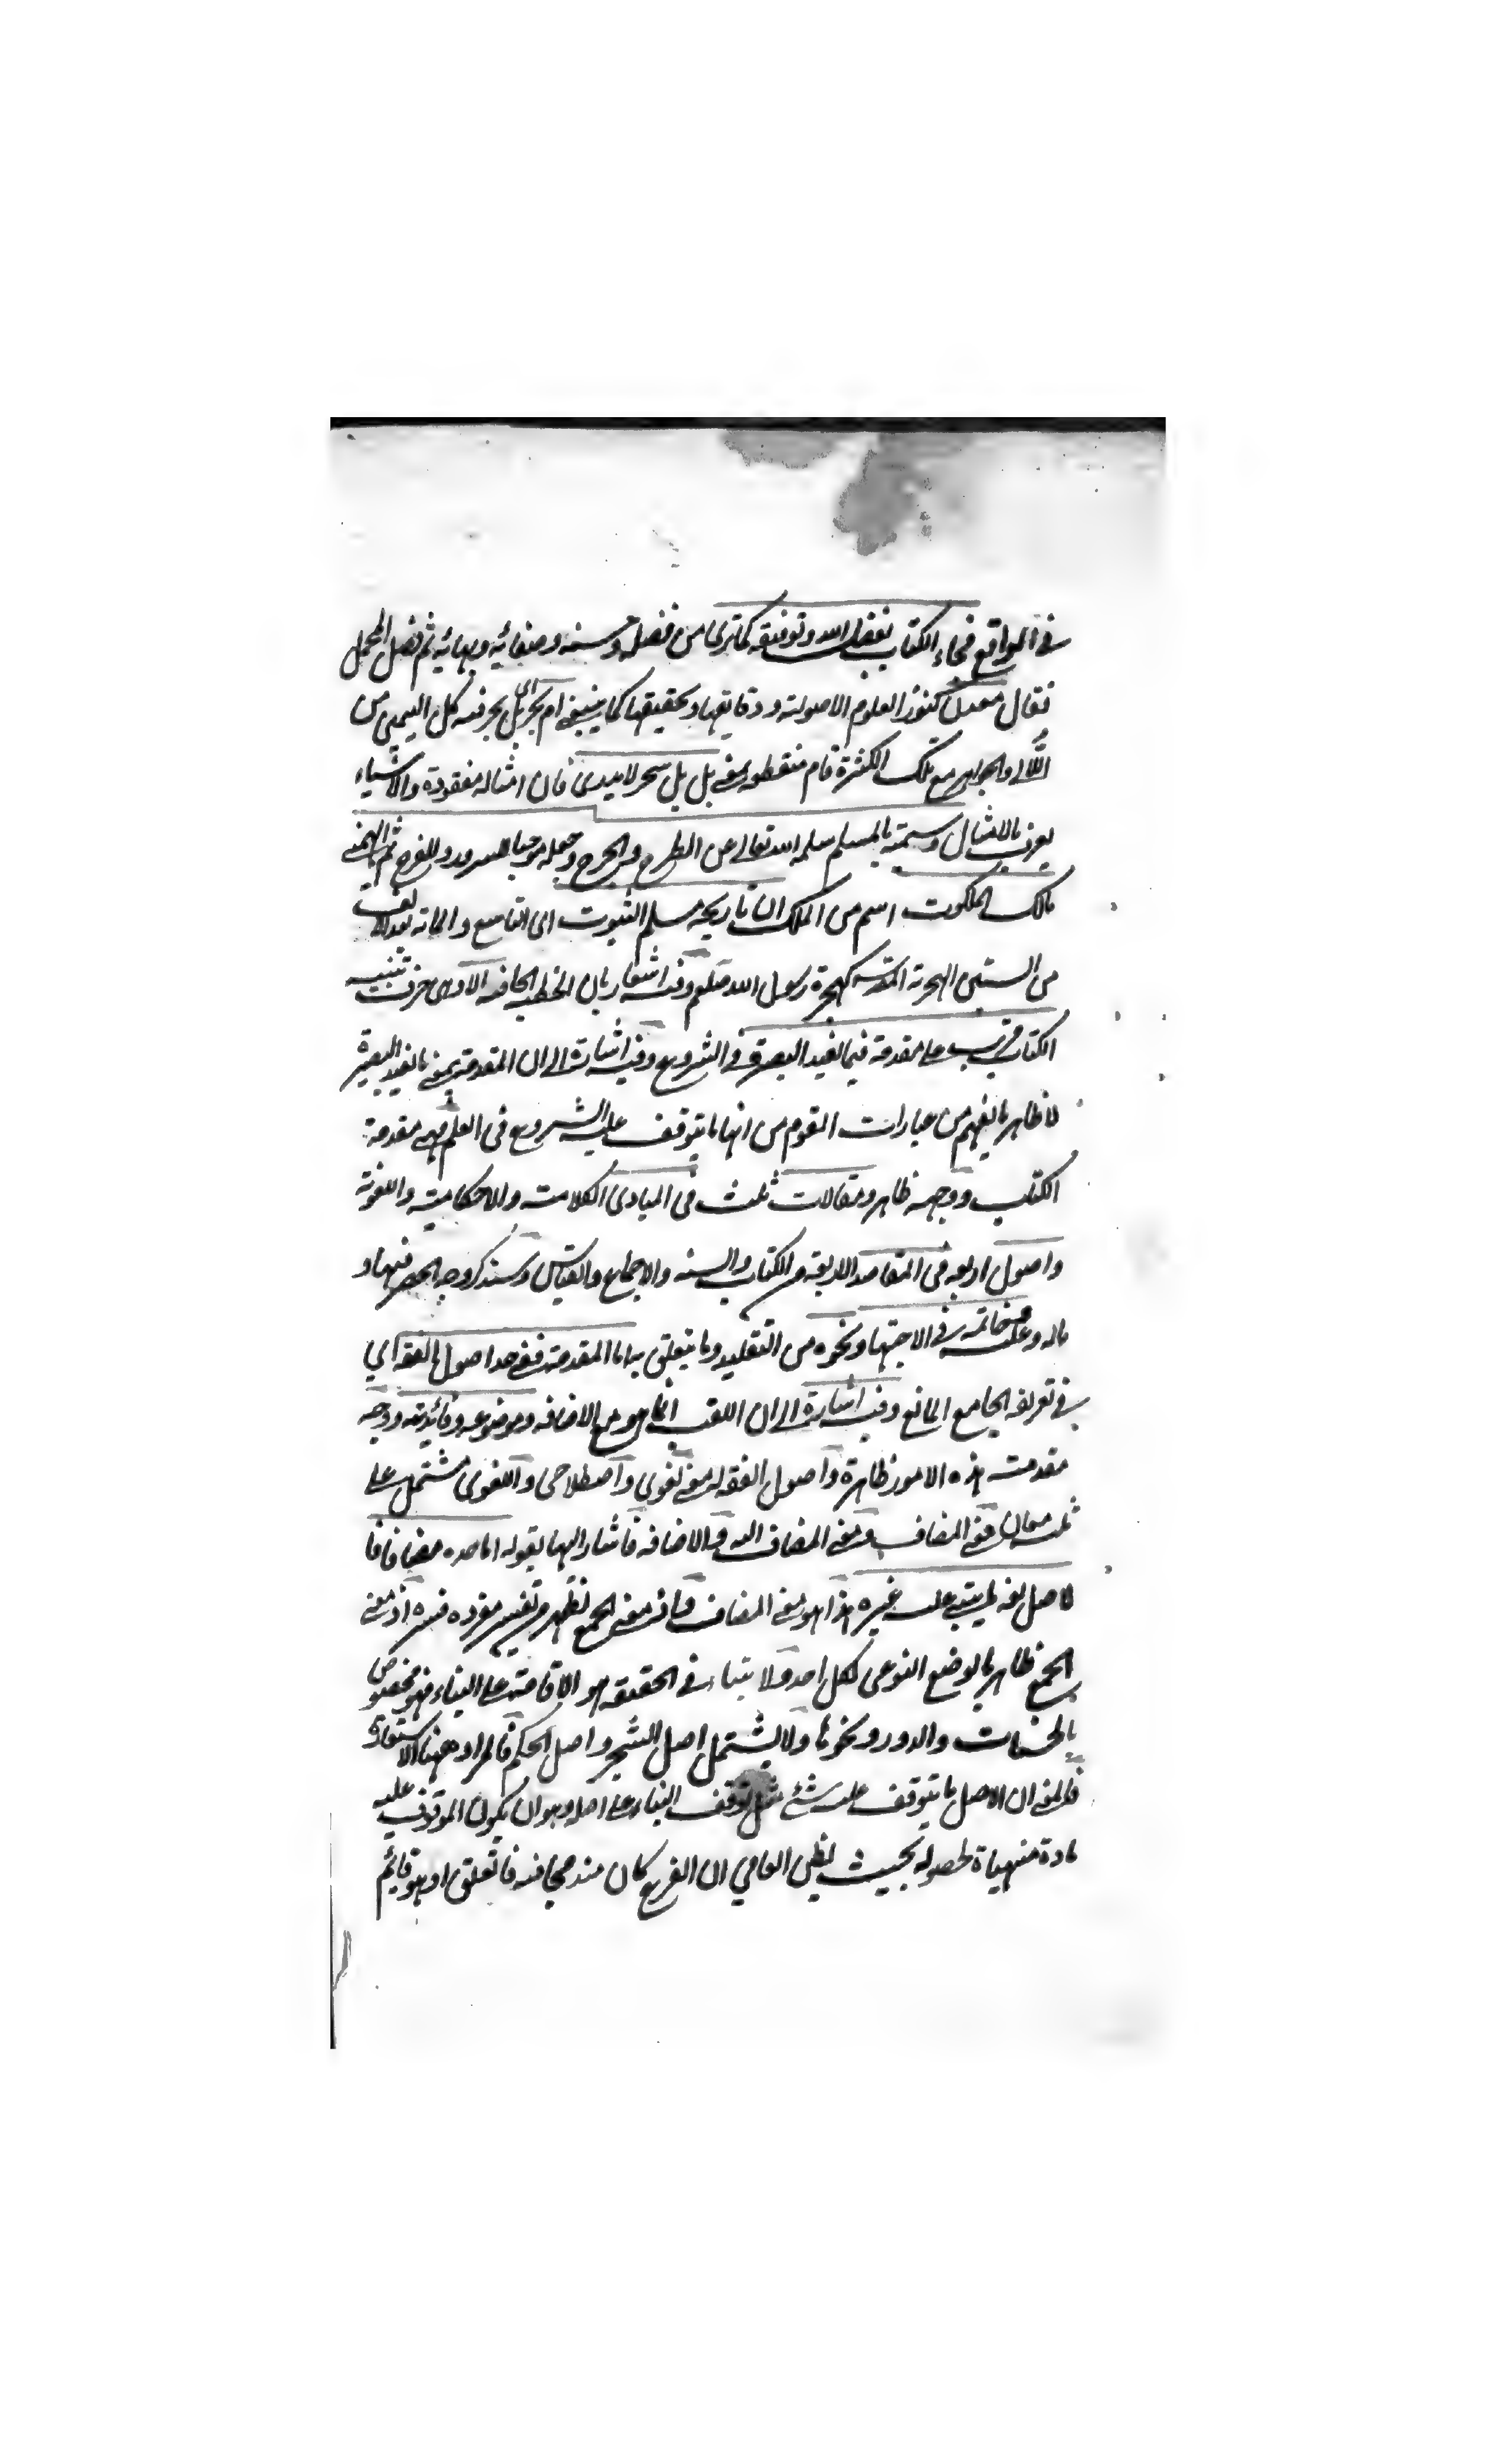 في المواقع فجاء الكتاب بفضل الله وتوفيقه كما ترى من فضله وحسنه وصفائه وبهائه ثم فصل المجمل
فقال معدن كنوز العلوم الاصولية ودقايقها وتحقيقها كما ينبغي ام بحر اي بل بحر فيه كل اليمين من
اللآلي والجواهر مع تلك الكثرة فام منقطعة بمعنى بل بل سحر لا يدرى فان امثاله مفقودة والاشياء
يعرف بالامثال وسميته بالمسلم سلمه الله تعالى عن الطرح والجرح وجعله موجبا للسرور وللفرح ثم الهمني
مالك الملكوت اسم من الملك ان تاريخه مسلم الثبوت اي التاسع والماية بعد الالف
من السنين الهجرية المقدسة كهجرة رسول الله صلعم وفيه اشعار بان الخطبة الحاقية الا حرف تنبيه
الكتاب مرتب على مقدمة فيما يفيد البصيرة في الشروع وفيه اشارة الى ان المقدمة بمعنى ما يفيد البصيرة
لا ظاهر ما يفهم من عبارات القوم من انها ما يتوقف عليه الشروع في العلم فهي مقدمة
الكتاب ووجهه ظاهر ومقالات ثلث في المبادي الكلامية والاحكامية واللغوية
واصول اربعة في المقاصد الاربعة من الكتاب والسنة والاجماع والقياس وسنذكر وجه الحصر فيها و
ماله وعليه وخاتمة في الاجتهاد ونحوه من التقليد وما يتعلق به اما المقدمة ففي حد اصول الفقه اي
في تعريفه الجامع المانع وفيه اشارة الى ان اللقب انما هو مع الاضافة وموضوعه وفائدته ووجه
مقدمية هذه الامور ظاهرة واصول الفقه له معنى لغوي واصطلاحي واللغوي مشتمل على
ثلث معان معنى المضاف ومعنى المضاف اليه والاضافة فاشار اليها بقوله اما حده مضافا فا
لاصل لغة ما يبتني عليه غيره هذا هو معنى المضاف فان معنى الجمع يظهر من تفسير مفرده فسره اذ معنى
الجمع ظاهر بالوضع النوعي لكل احد ولا بتناء في الحقيقة هو الاقامة على البناء فهو مخصوص
بالحسيات والدور ونحوها ولا يشتمل اصل الشجر واصل الحكم فالمراد ههنا الاستعارة
فالمعنى ان الاصل ما يتوقف عليه شئ مثل توقف البناء على اصله وهو ان يكون الموقوف عليه
مادة متهياة لحصوله بحيث يظن العامي ان الفرع كان مندمجا فيه فا تعلق او هو قائم